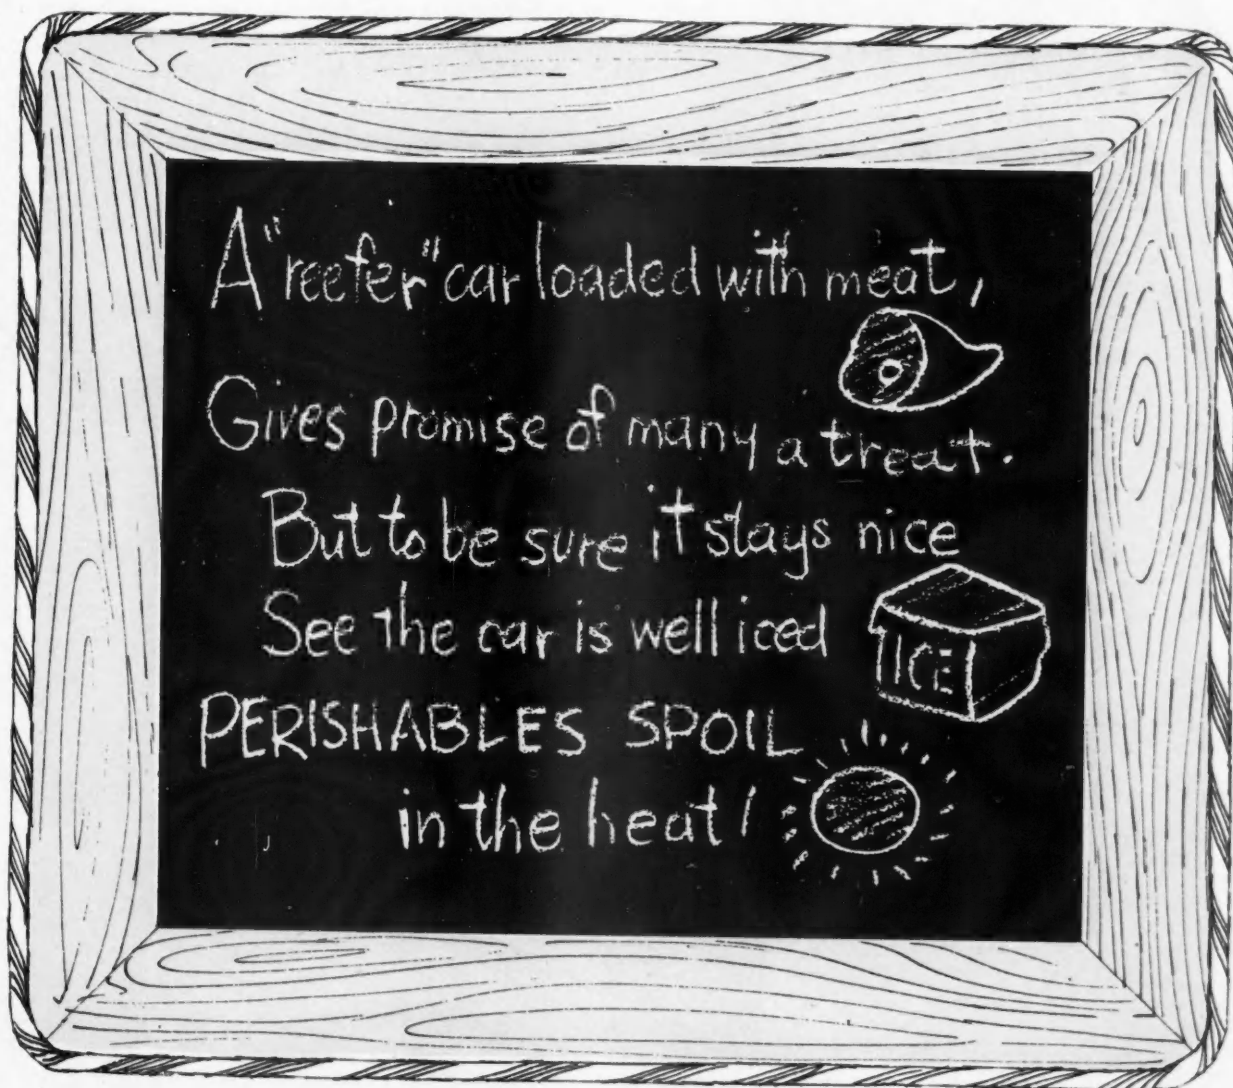 A "reefer" car loaded with meat,
Gives promise of many a treat.
But to be sure it stays nice
See the car is well iced
ICE
PERISHABLES SPOIL
in the heat!